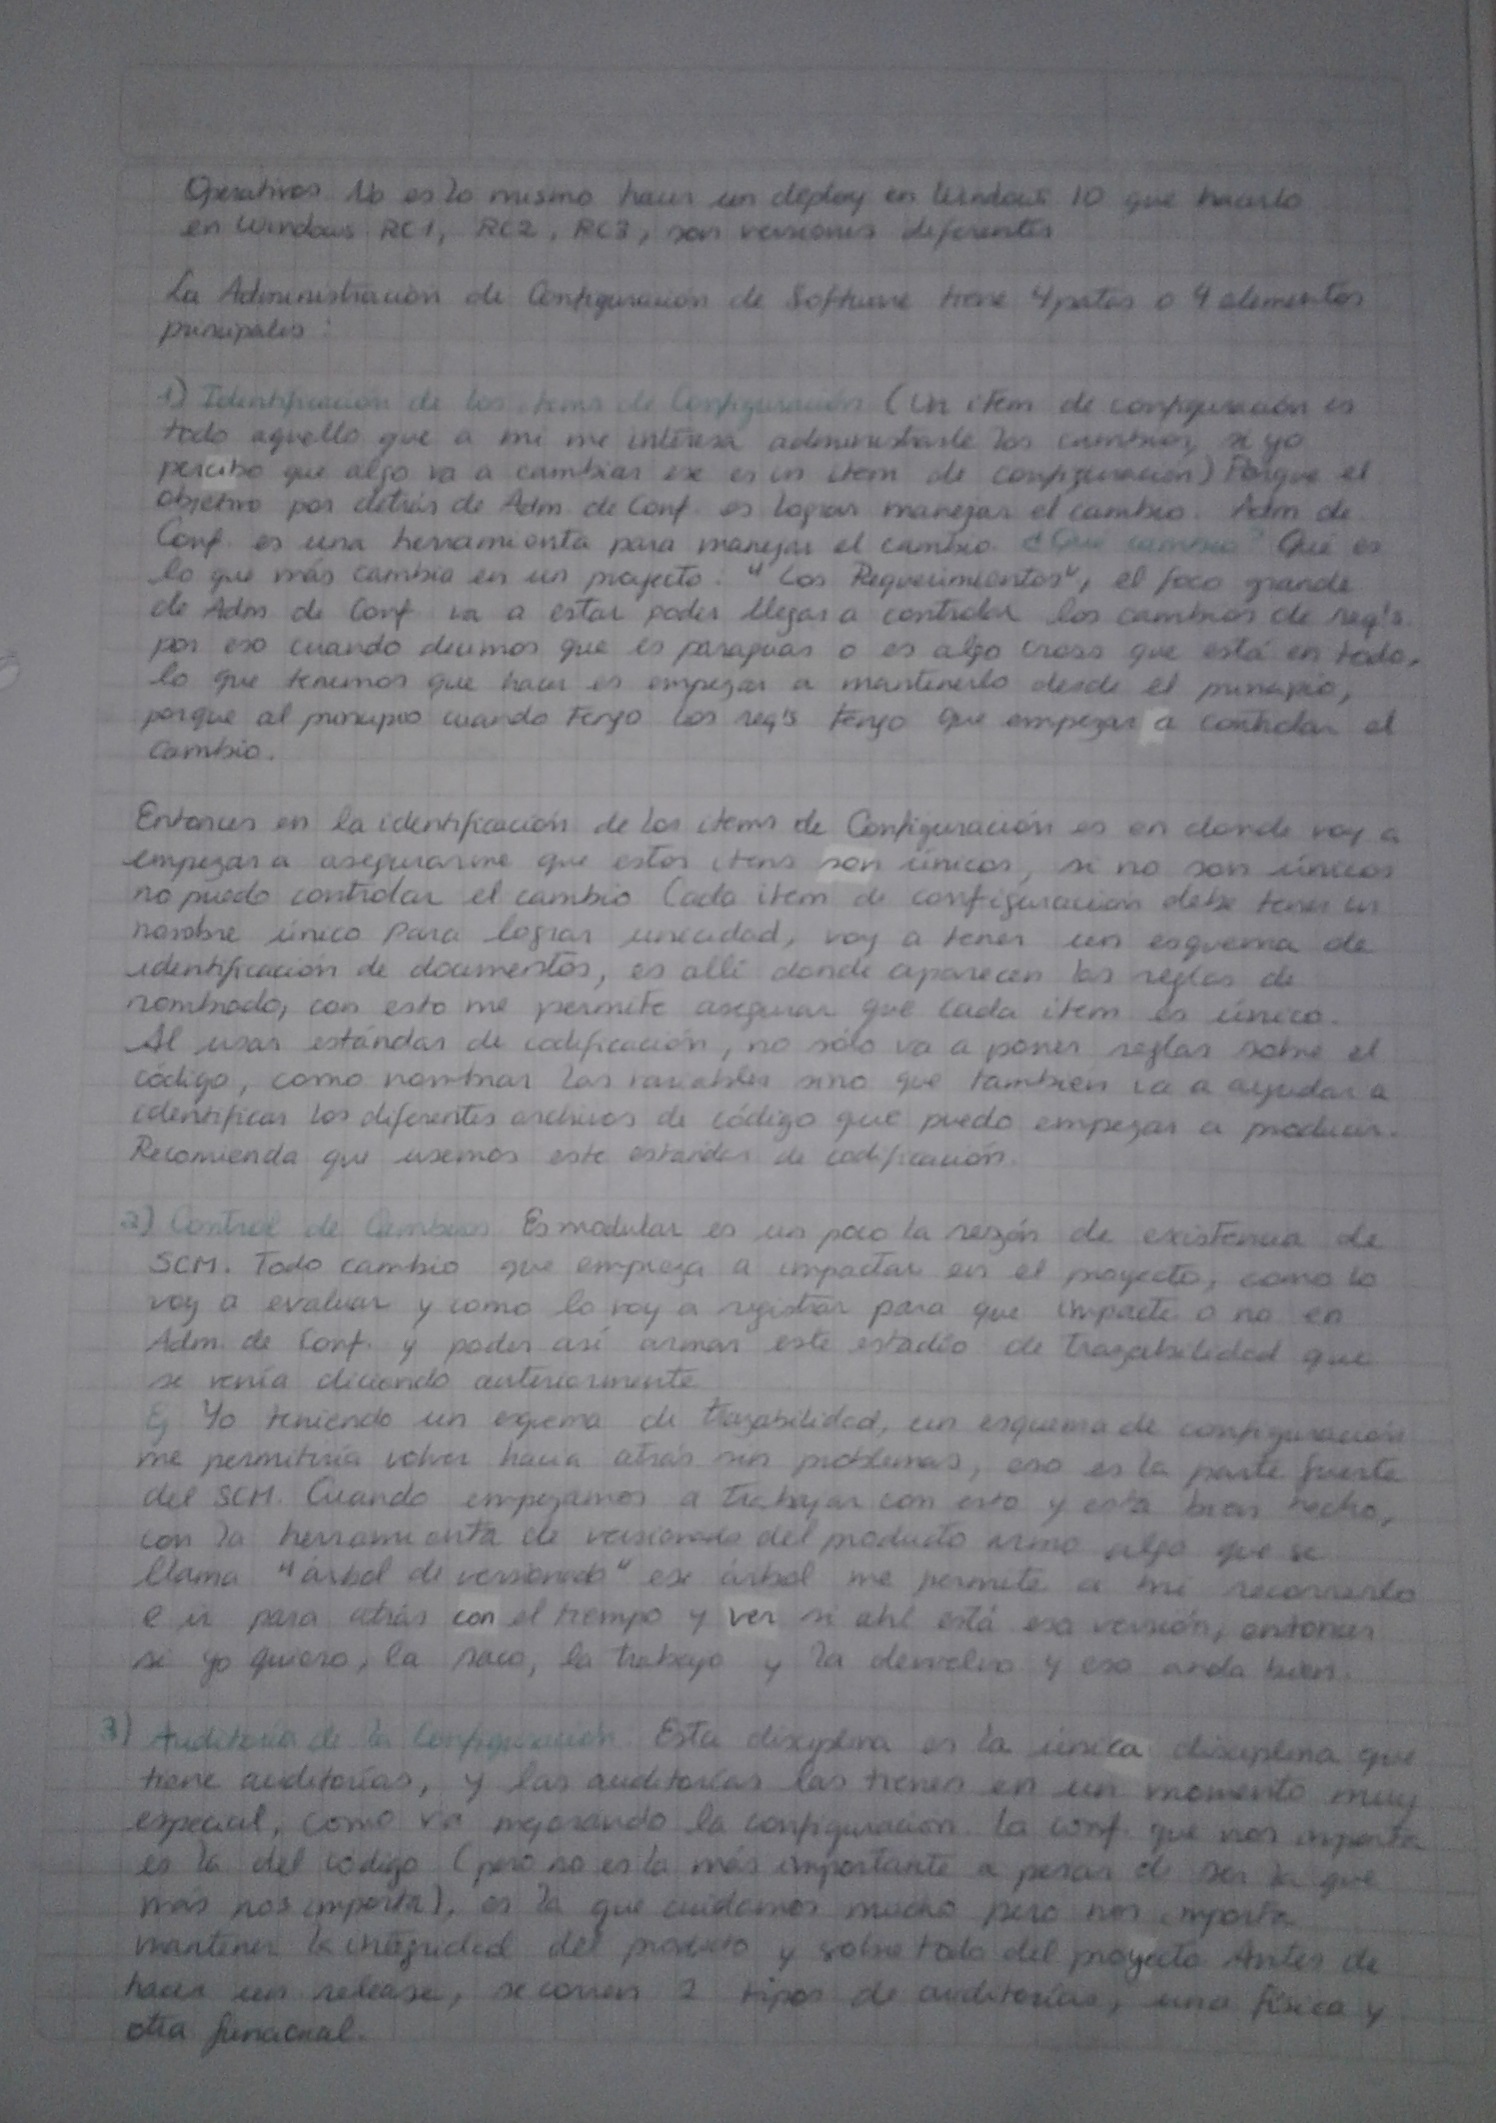 Operativos No es lo mismo hacer un deploy en Windows 10 que hacerlo
en Windows RC1, RC2, RC3, son versiones diferentes
La Administración de Configuración de Software tiene 4 patas o 4 elementos
principales:
1) Identificación de los items de Configuración (Un item de configuración es
todo aquello que a mí me interesa administrarle los cambios, si yo
percibo que algo va a cambiar ese es un item de configuración) Porque el
objetivo por detrás de Adm. de Conf. es lograr manejar el cambio. Adm de
Conf. es una herramienta para manejar el cambio. ¿Qué cambio? Qué es
lo que más cambia en un proyecto: "Los Requerimientos", el foco grande
de Adm de Conf va a estar poder llegar a controlar los cambios de req's.
por eso cuando decimos que es paraguas o es algo cross que está en todo,
lo que tenemos que hacer es empezar a mantenerlo desde el principio,
porque al principio cuando tengo los req's tengo que empezar a controlar el
cambio.
Entonces en la identificación de los items de Configuración es en donde voy a
empezar a asegurarme que estos items son únicos, si no son únicos
no puedo controlar el cambio Cada item de configuración debe tener un
nombre único Para lograr unicidad, voy a tener un esquema de
identificación de documentos, es allí donde aparecen las reglas de
nombrado, con esto me permite asegurar que cada item es único.
Al usar estándar de codificación, no sólo va a poner reglas sobre el
código, como nombrar las variables sino que también va a ayudar a
identificar los diferentes archivos de código que puedo empezar a producir.
Recomienda que usemos este estándar de codificación.
2) Control de Cambios Es modular es un poco la razón de existencia de
SCM. Todo cambio que empieza a impactar en el proyecto, como lo
voy a evaluar y como lo voy a registrar para que impacte o no en
Adm. de Conf. y poder así armar este estadío de trazabilidad que
se venía diciendo anteriormente
Ej Yo teniendo un esquema de trazabilidad, un esquema de configuración
me permitiría volver hacia atrás sin problemas, eso es la parte fuerte
del SCM. Cuando empezamos a trabajar con esto y está bien hecho,
con la herramienta de versionado del producto armo algo que se
llama "árbol de versionado" ese árbol me permite a mi recorrerlo
e ir para atrás con el tiempo y ver si ahí está esa versión, entonces
si yo quiero, la saco, la trabajo y la devuelvo y eso anda bien.
3) Auditoría de la Configuración. Esta disciplina es la única disciplina que
tiene auditorías, y las auditorías las tienen en un momento muy
especial, como va mejorando la configuración. La conf. que nos importa
es la del código (pero no es la más importante a pesar de ser la que
más nos importa), es la que cuidamos mucho pero nos importa
mantener la integridad del producto y sobre todo del proyecto Antes de
hacer un release, se corren 2 tipos de auditorías, una física y
otra funcional.